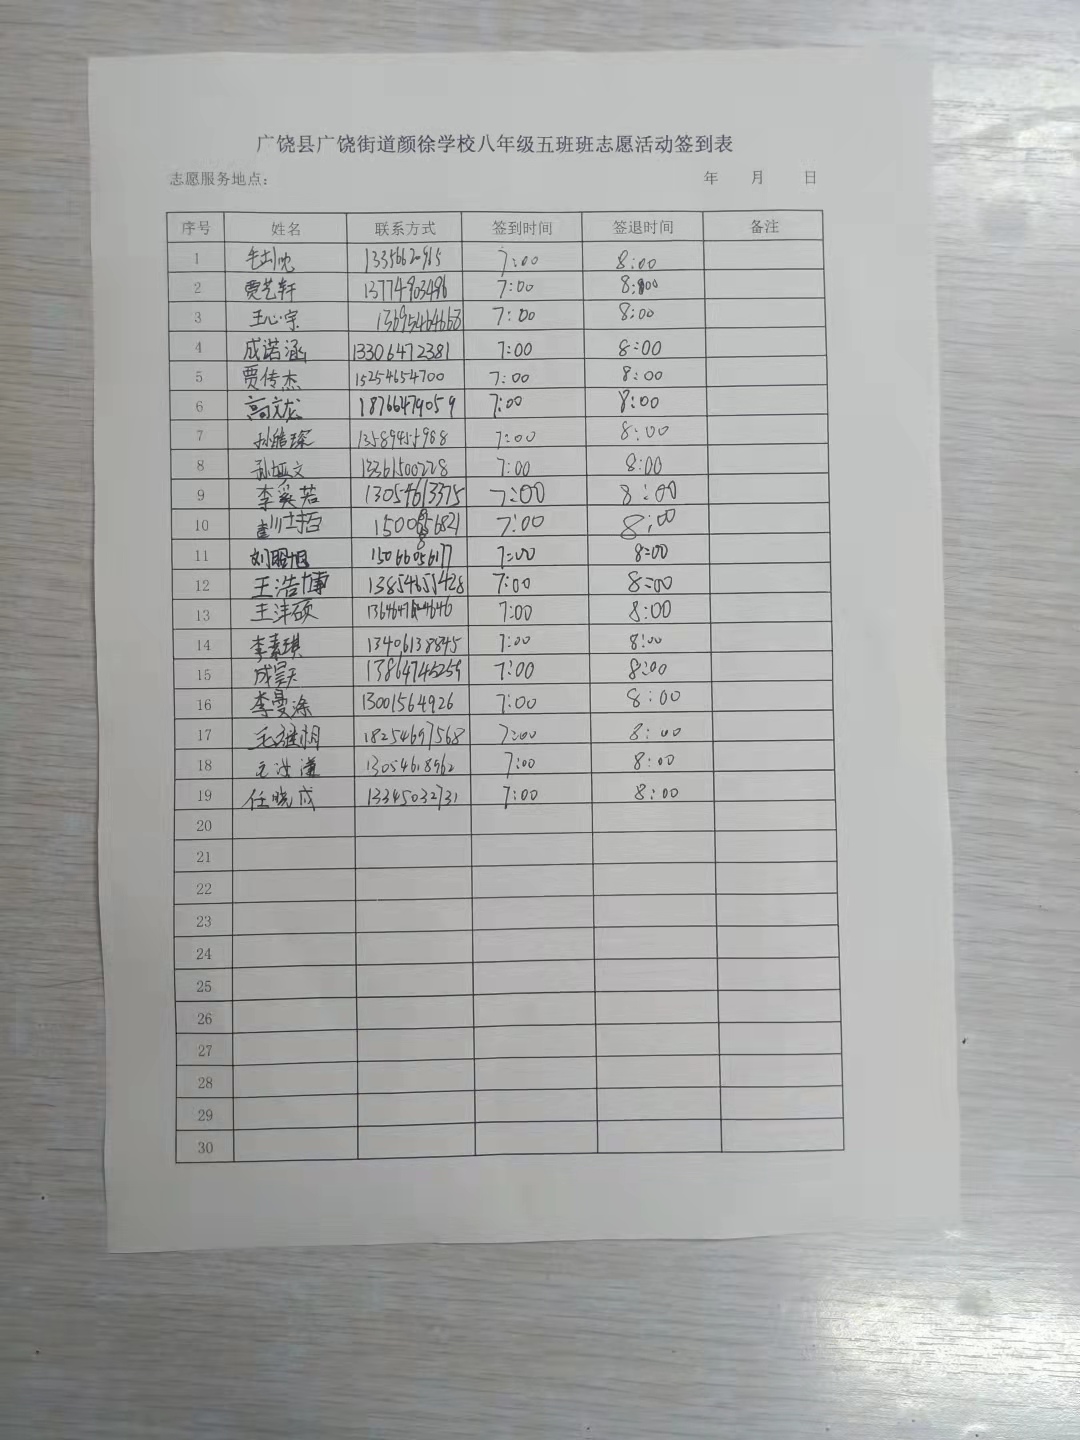 广饶县广饶街道颜徐学校八年级五班班志愿活动签到表
志愿服务地点： 年 月 日
序号 姓名 联系方式 签到时间 签退时间 备注
1 7:00 8:00
2 贾艺轩 13774903496 7:00 8:00
3 王心宗 13695464663 7:00 8:00
4 成诺涵 13306472381 7:00 8:00
5 贾传杰 15254654700 7:00 8:00
6 高文龙 18766479059 7:00 8:00
7 13589455988 7:00 8:00
8 孙娅文 13361500228 7:00 8:00
9 李奚若 13054613375 7:00 8:00
10 7:00 8:00
11 15066056177 7:00 8:00
12 王浩博 13854651428 7:00 8:00
13 王沣硕 7:00 8:00
14 李素琪 13406138845 7:00 8:00
15 成昊天 13864745255 7:00 8:00
16 李曼涂 13001564926 7:00 8:00
17 18254697568 7:00 8:00
18 13054618962 7:00 8:00
19 任晓成 13345032731 7:00 8:00
20
21
22
23
24
25
26
27
28
29
30